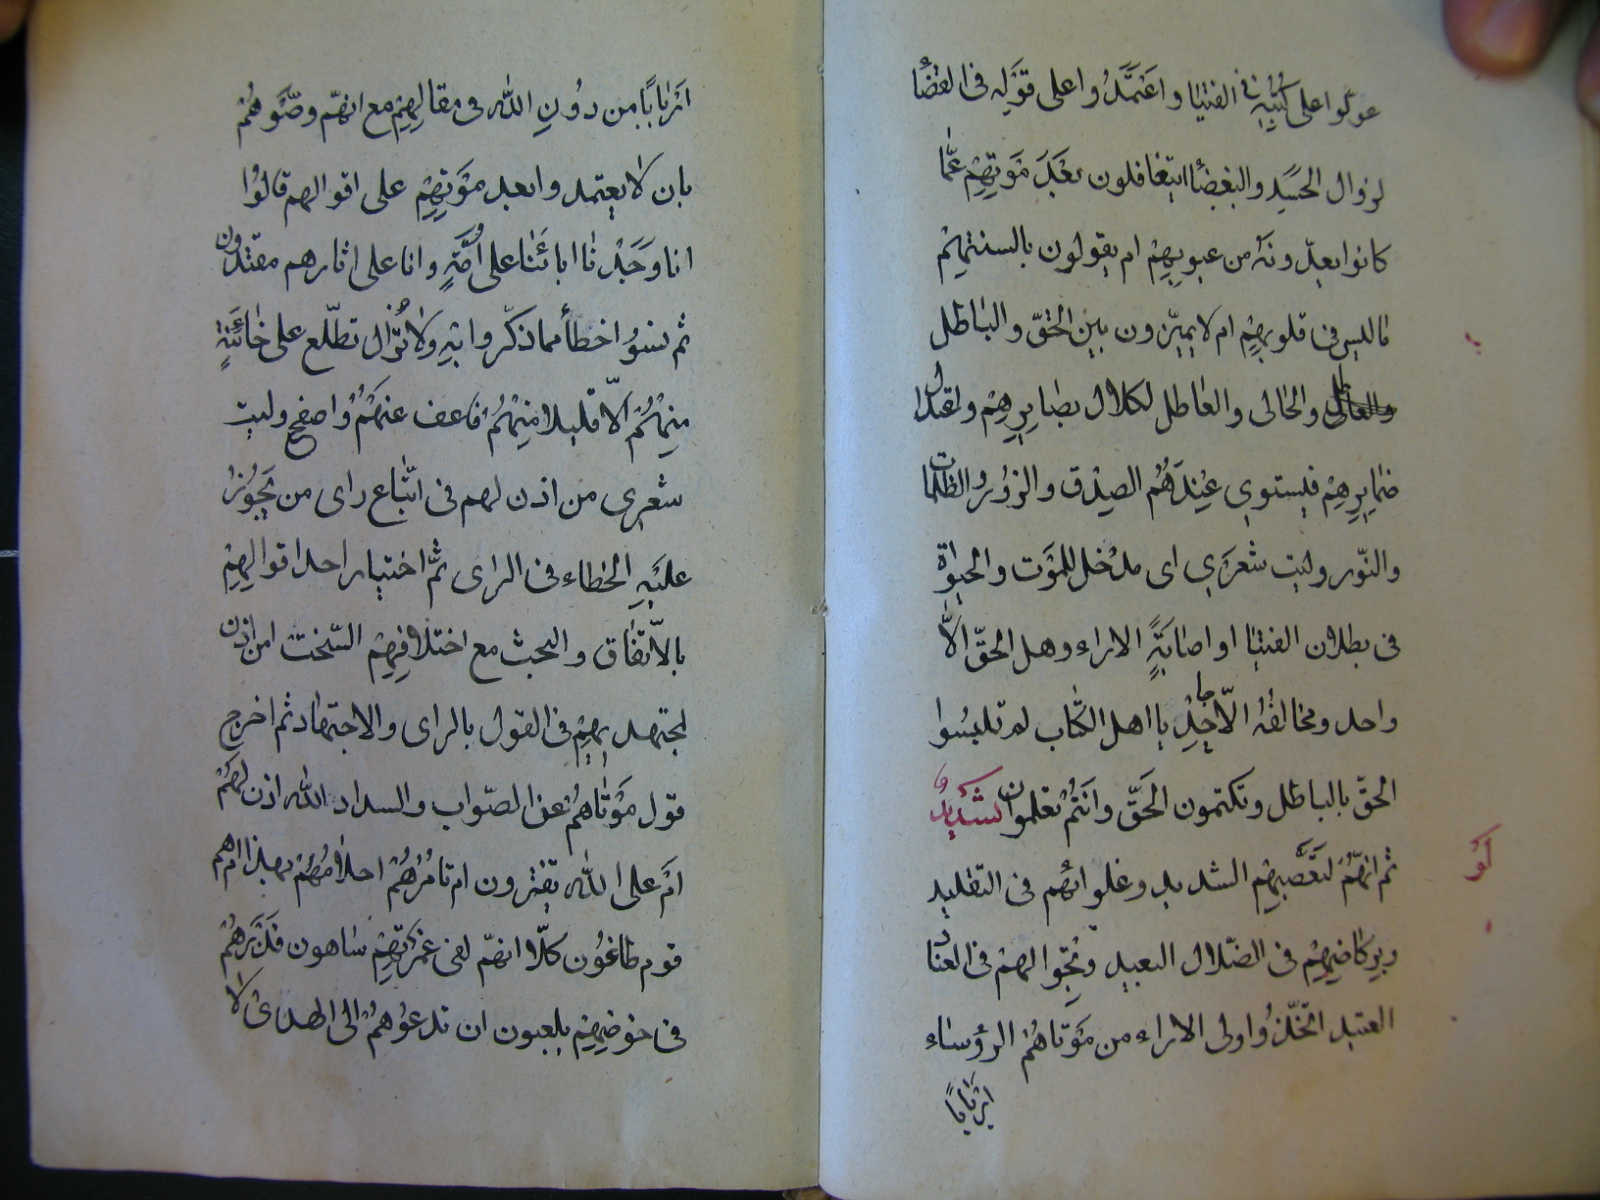 عولوا على كتبه فى الفتيا واعتمدوا على قوله فى القضا
لزوال الحسد والبغضا ايتغافلون بعد موتهم عما
كانوا يعدونه من عيوبهم ام يقولون بالسنتهم
ما ليس فى قلوبهم ام لا يميزون بين الحق والباطل
والحالى والعاطل لكلال بصايرهم و
ضمايرهم فيستوى عندهم الصدق والزور والظلمات
والنور وليت شعرى اى مدخل للموت والحيوة
فى بطلان الفتيا او اصابة الاراء وهل الحق الا
واحد ومخالفه الا جاحد يا اهل الكتاب لم تلبسوا
الحق بالباطل وتكتمون الحق وانتم تعلمون تشديد
او
ثم انهم لتعصبهم الشديد وغلوائهم فى التقليد
و فى الضلال البعيد و فى العناد
العتيد اتخذوا اولى الاراء من موتاهم الرؤساء
اربابا
اربابا من دون الله فى مقالهم مع انهم وصوهم
بان لا يعتمدوا بعد موتهم على اقوالهم قالوا
انا وجدنا اباءنا على امة وانا على اثارهم مقتدون
ثم نسوا خطأ مما ذكروا به ولا تزال تطلع على خائنة
منهم الا قليلا منهم فاعف عنهم واصفح وليت
شعرى من اذن لهم فى اتباع راى من يجوز
عليه الخطاء فى الراى ثم اختيار احد اقوالهم
بالاتفاق والبحث مع اختلافهم امن اذن
لمجتهديهم فى القول بالراى والاجتهاد ثم اخرج
قول موتاهم عن الصواب والسداد الله اذن لهم
ام على الله يفترون ام تامرهم احلامهم بهذا ام هم
قوم طاغون كلا انهم لفى غمرتهم ساهون فذرهم
فى خوضهم يلعبون ان تدعوهم الى الهدى لا